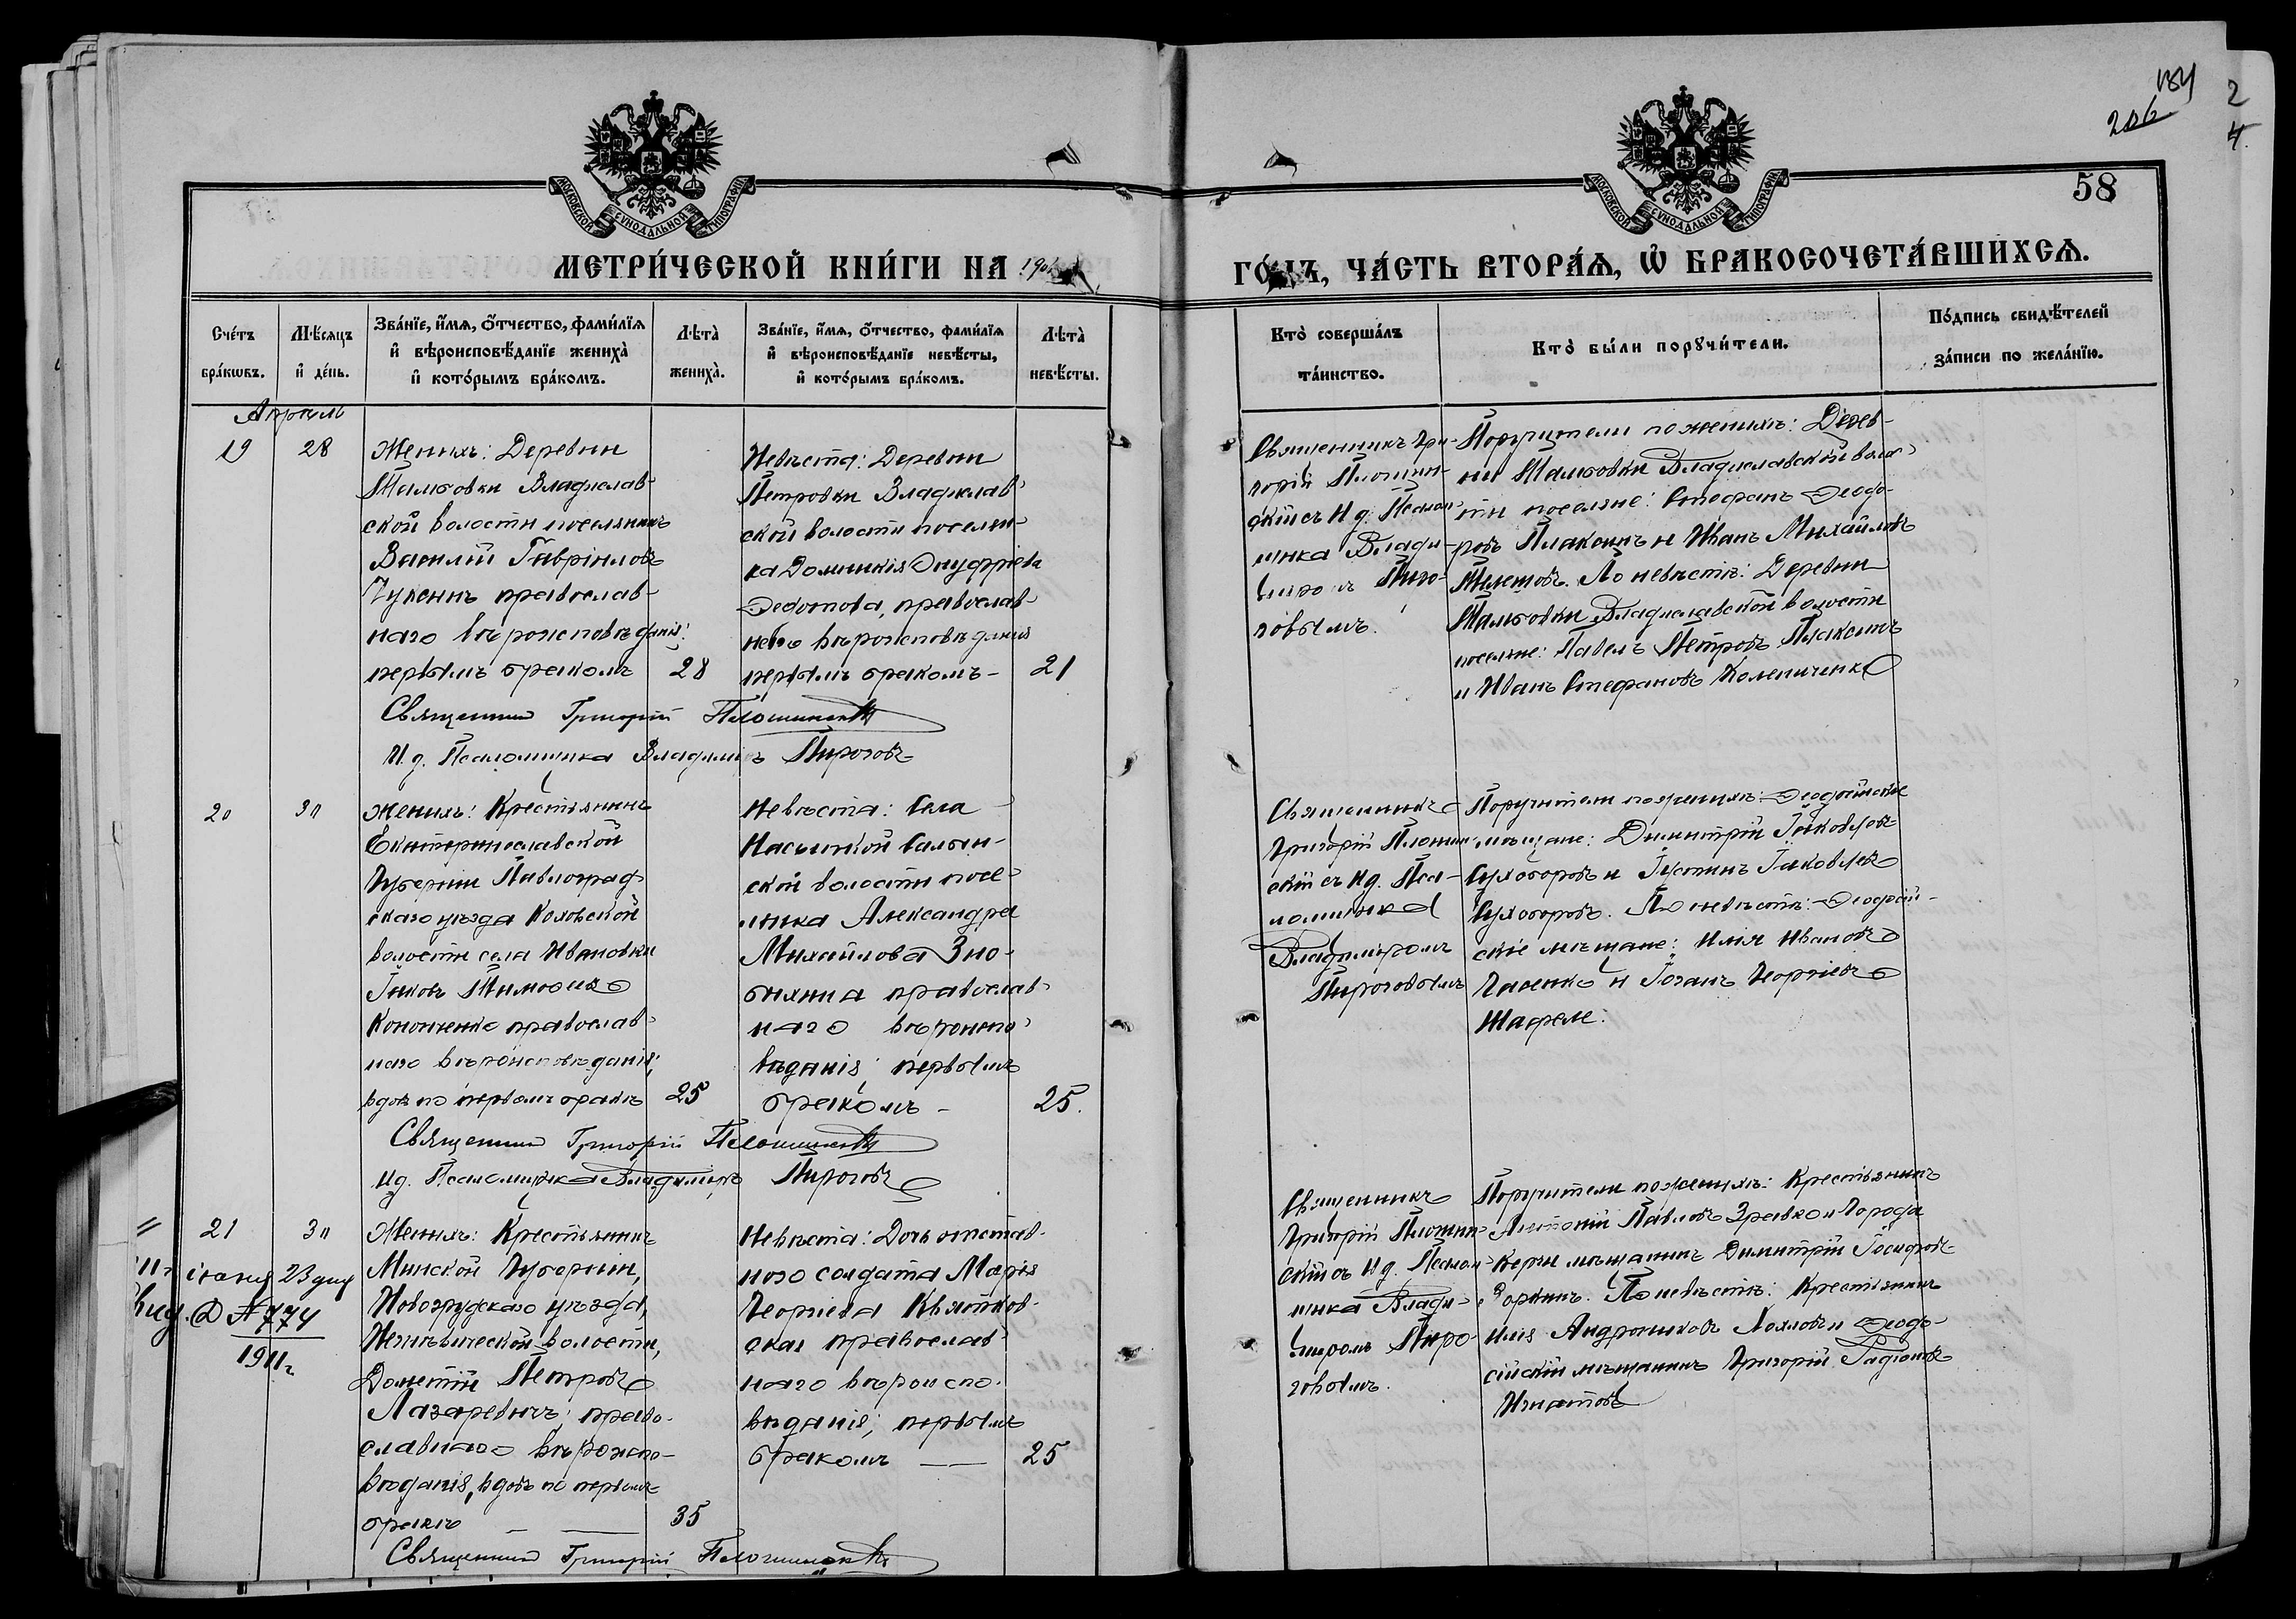 184
206
2
4.
58
МОСКОВСКОЙ СѴНОДАЛЬНОЙ ТИПОГРАФІИ
МОСКОВСКОЙ СѴНОДАЛЬНОЙ ТИПОГРАФІИ
МЕТРИ́ЧЕСКОЙ КНИ́ГИ НА 190
ГО́ДЪ, ЧА́СТЬ ВТОРА́Ѧ, Ѡ҆ БРАКОСОЧЕТА́ВШИХСѦ.
Сче́тъ бра́кѡвъ.
Мѣ́сяцъ и҆ де́нь.
Зва́нїе, и҆́мѧ, ѻ҆́тчество, фами́лїѧ
и҆ вѣроисповѣ́данїе жениха̀
и҆ кото́рымъ бра́комъ.
Лѣ́та̀ жениха̀.
Зва́нїе, и҆́мѧ, ѻ҆́тчество, фами́лїѧ
и҆ вѣроисповѣ́данїе невѣ́сты,
и҆ кото́рымъ бра́комъ.
Лѣ́та̀ невѣ́сты.
Кто̀ соверша́лъ
та́инство.
Кто̀ бы́ли порꙋчи́тели.
По́дпись свидѣ́телей
за́писи по жела́нїю.
Апрѣль
19
28
Женихъ: Деревни
Владислав-
ской волости поселянинъ
Василій Гавріиловъ
православ-
наго вѣроисповѣданія;
первымъ бракомъ
28
Невѣста: Деревни
Петровки Владислав-
ской волости поселян-
ка Домникія Онуфріева
Ѳедотова, православ-
наго вѣроисповѣданія
первымъ бракомъ -
21
Священникъ Гри-
горій Плошин-
скій съ И д. Псалом-
щика Влади-
міромъ Пиро-
говымъ.
Поручители по женихѣ: Дерев-
ни Владиславской волос-
ти поселяне: Стефанъ Ѳеодо-
ровъ Плаксинъ и Иванъ Михайловъ
По невѣстѣ: Деревни
Владиславской волости
поселяне: Павелъ Петровъ Плаксинъ
и Иванъ Стефановъ Колениченко
Священникъ Григорій Плошинскій
И. д. Псаломщика Владиміръ Пироговъ
20
30
Женихъ: Крестьянинъ
Екатеринославской
Губерніи Павлоград-
скаго уѣзда Коховской
волости села Ивановки
Іаковъ Тимоѳеевъ
Кононенко православ-
наго вѣроисповѣданія;
вдовъ по первомъ бракѣ
25
Невѣста: Села
Насыпкой Салын-
ской волости посе-
лянка Александра
Михайлова Зно-
православ-
наго вѣроиспо-
вѣданія; первымъ
бракомъ -
25.
Священникъ
Григорій Плошин-
скій съ И д. Пса-
ломщика
Владиміромъ
Пироговымъ
Поручители по женихѣ: Ѳеодосійскіе
мѣщане: Димитрій Іаковлевъ
Сухоборовъ и Іустинъ Іаковлевъ
Сухоборовъ. По невѣстѣ: Ѳеодосій-
скіе мѣщане: Илія Ивановъ
и Іоганъ Георгіевъ
Шафеле.
Священникъ Григорій Плошинскій
И д. Псаломщика Владиміръ Пироговъ
21
30
іюня 23 дня
№ 774
1911 г.
Женихъ: Крестьянинъ
Минской Губерніи,
Новогрудскаго уѣзда,
волости,
Дометій Петровъ
Лазаревичъ; право-
славнаго вѣроиспо-
вѣданія, вдовъ по первомъ
бракѣ
35
Невѣста: Дочь отстав-
ного солдата Марія
Георгіева Квятков-
ская православ-
наго вѣроиспо-
вѣданія; первымъ
бракомъ
25
Священникъ
Григорій Плошин-
скій съ И д. Псалом-
щика Влади-
міромъ Пиро-
говымъ.
Поручители по женихѣ: Крестьянинъ
Антоній Павловъ Зравко и Города
Керчи мѣщанинъ Димитрій Іосифовъ
По невѣстѣ: Крестьянинъ
Илія Андрониковъ Козловъ и Ѳеодо-
сійскій мѣщанинъ Григорій Радіоновъ
Игнатовъ
Священникъ Григорій Плошинскій